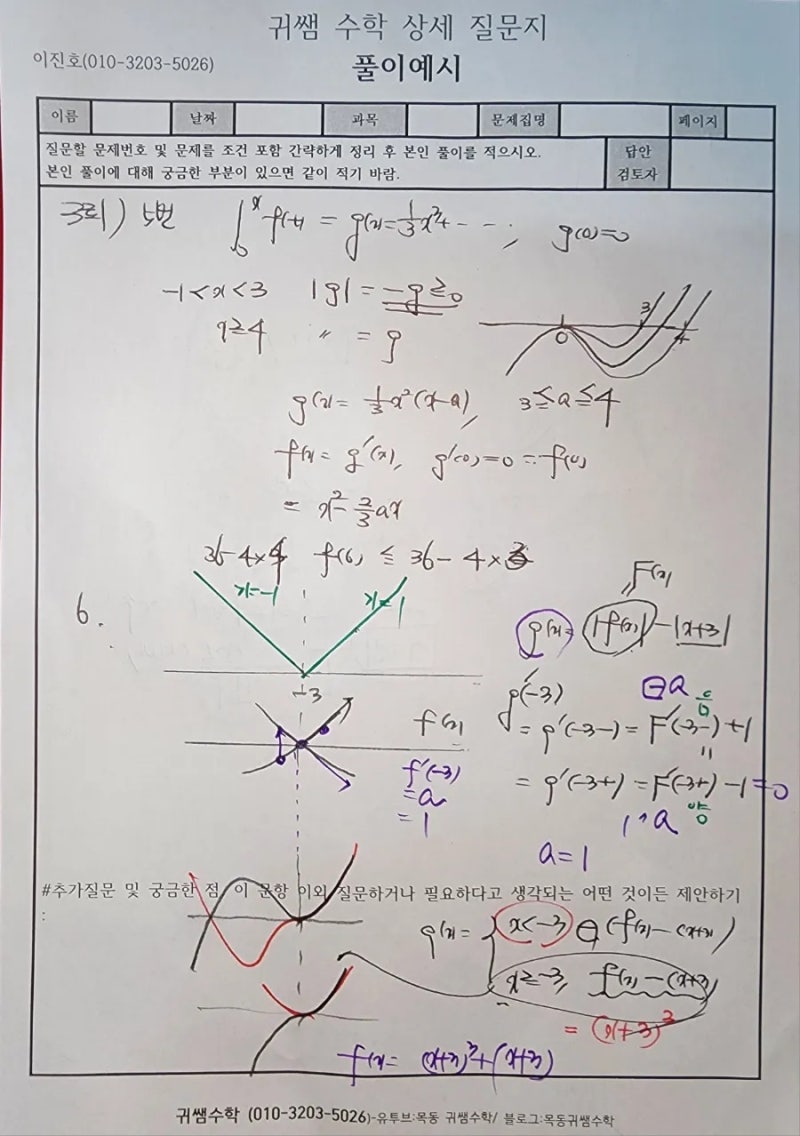 귀쌤 수학 상세 질문지
이진호(010-3203-5026)
풀이예시
이름 날짜 과목 문제집명 페이지
질문할 문제번호 및 문제를 조건 포함 간략하게 정리 후 본인 풀이를 적으시오.
본인 풀이에 대해 궁금한 부분이 있으면 같이 적기 바람.
답안
검토자
3회) 5번 ∫₀ˣ f(t) = g(x) = 1/3 x³+ - - -, g(0)=0
-1<x<3 |g| = -g ≥ 0
x≥4 〃 = g
0 3 4
g(x) = 1/3 x²(x-a), 3≤a≤4
f(x) = g'(x), g'(0)=0=f(0)
= x² - 2/3 ax
36-4×4 f(6) ≤ 36-4×3
6.
x=-1 x=1
-3
F(x)
g(x)= |f(x)| - |x+3|
g'(-3)
⊖a 음
= g'(-3-) = F'(-3-)+1
〃
= g'(-3+) = F'(-3+)-1=0
a 양
f(x)
f'(-3)
=a
=1
a=1
#추가질문 및 궁금한 점, 이 문항 이외 질문하거나 필요하다고 생각되는 어떤 것이든 제안하기
:
g(x)= { x<-3 ⊖(f(x)-(x+3))
x≥-3, f(x)-(x+3)
= (x+3)³
f(x)= (x+3)³+(x+3)
귀쌤수학 (010-3203-5026)-유투브:목동 귀쌤수학/ 블로그:목동귀쌤수학